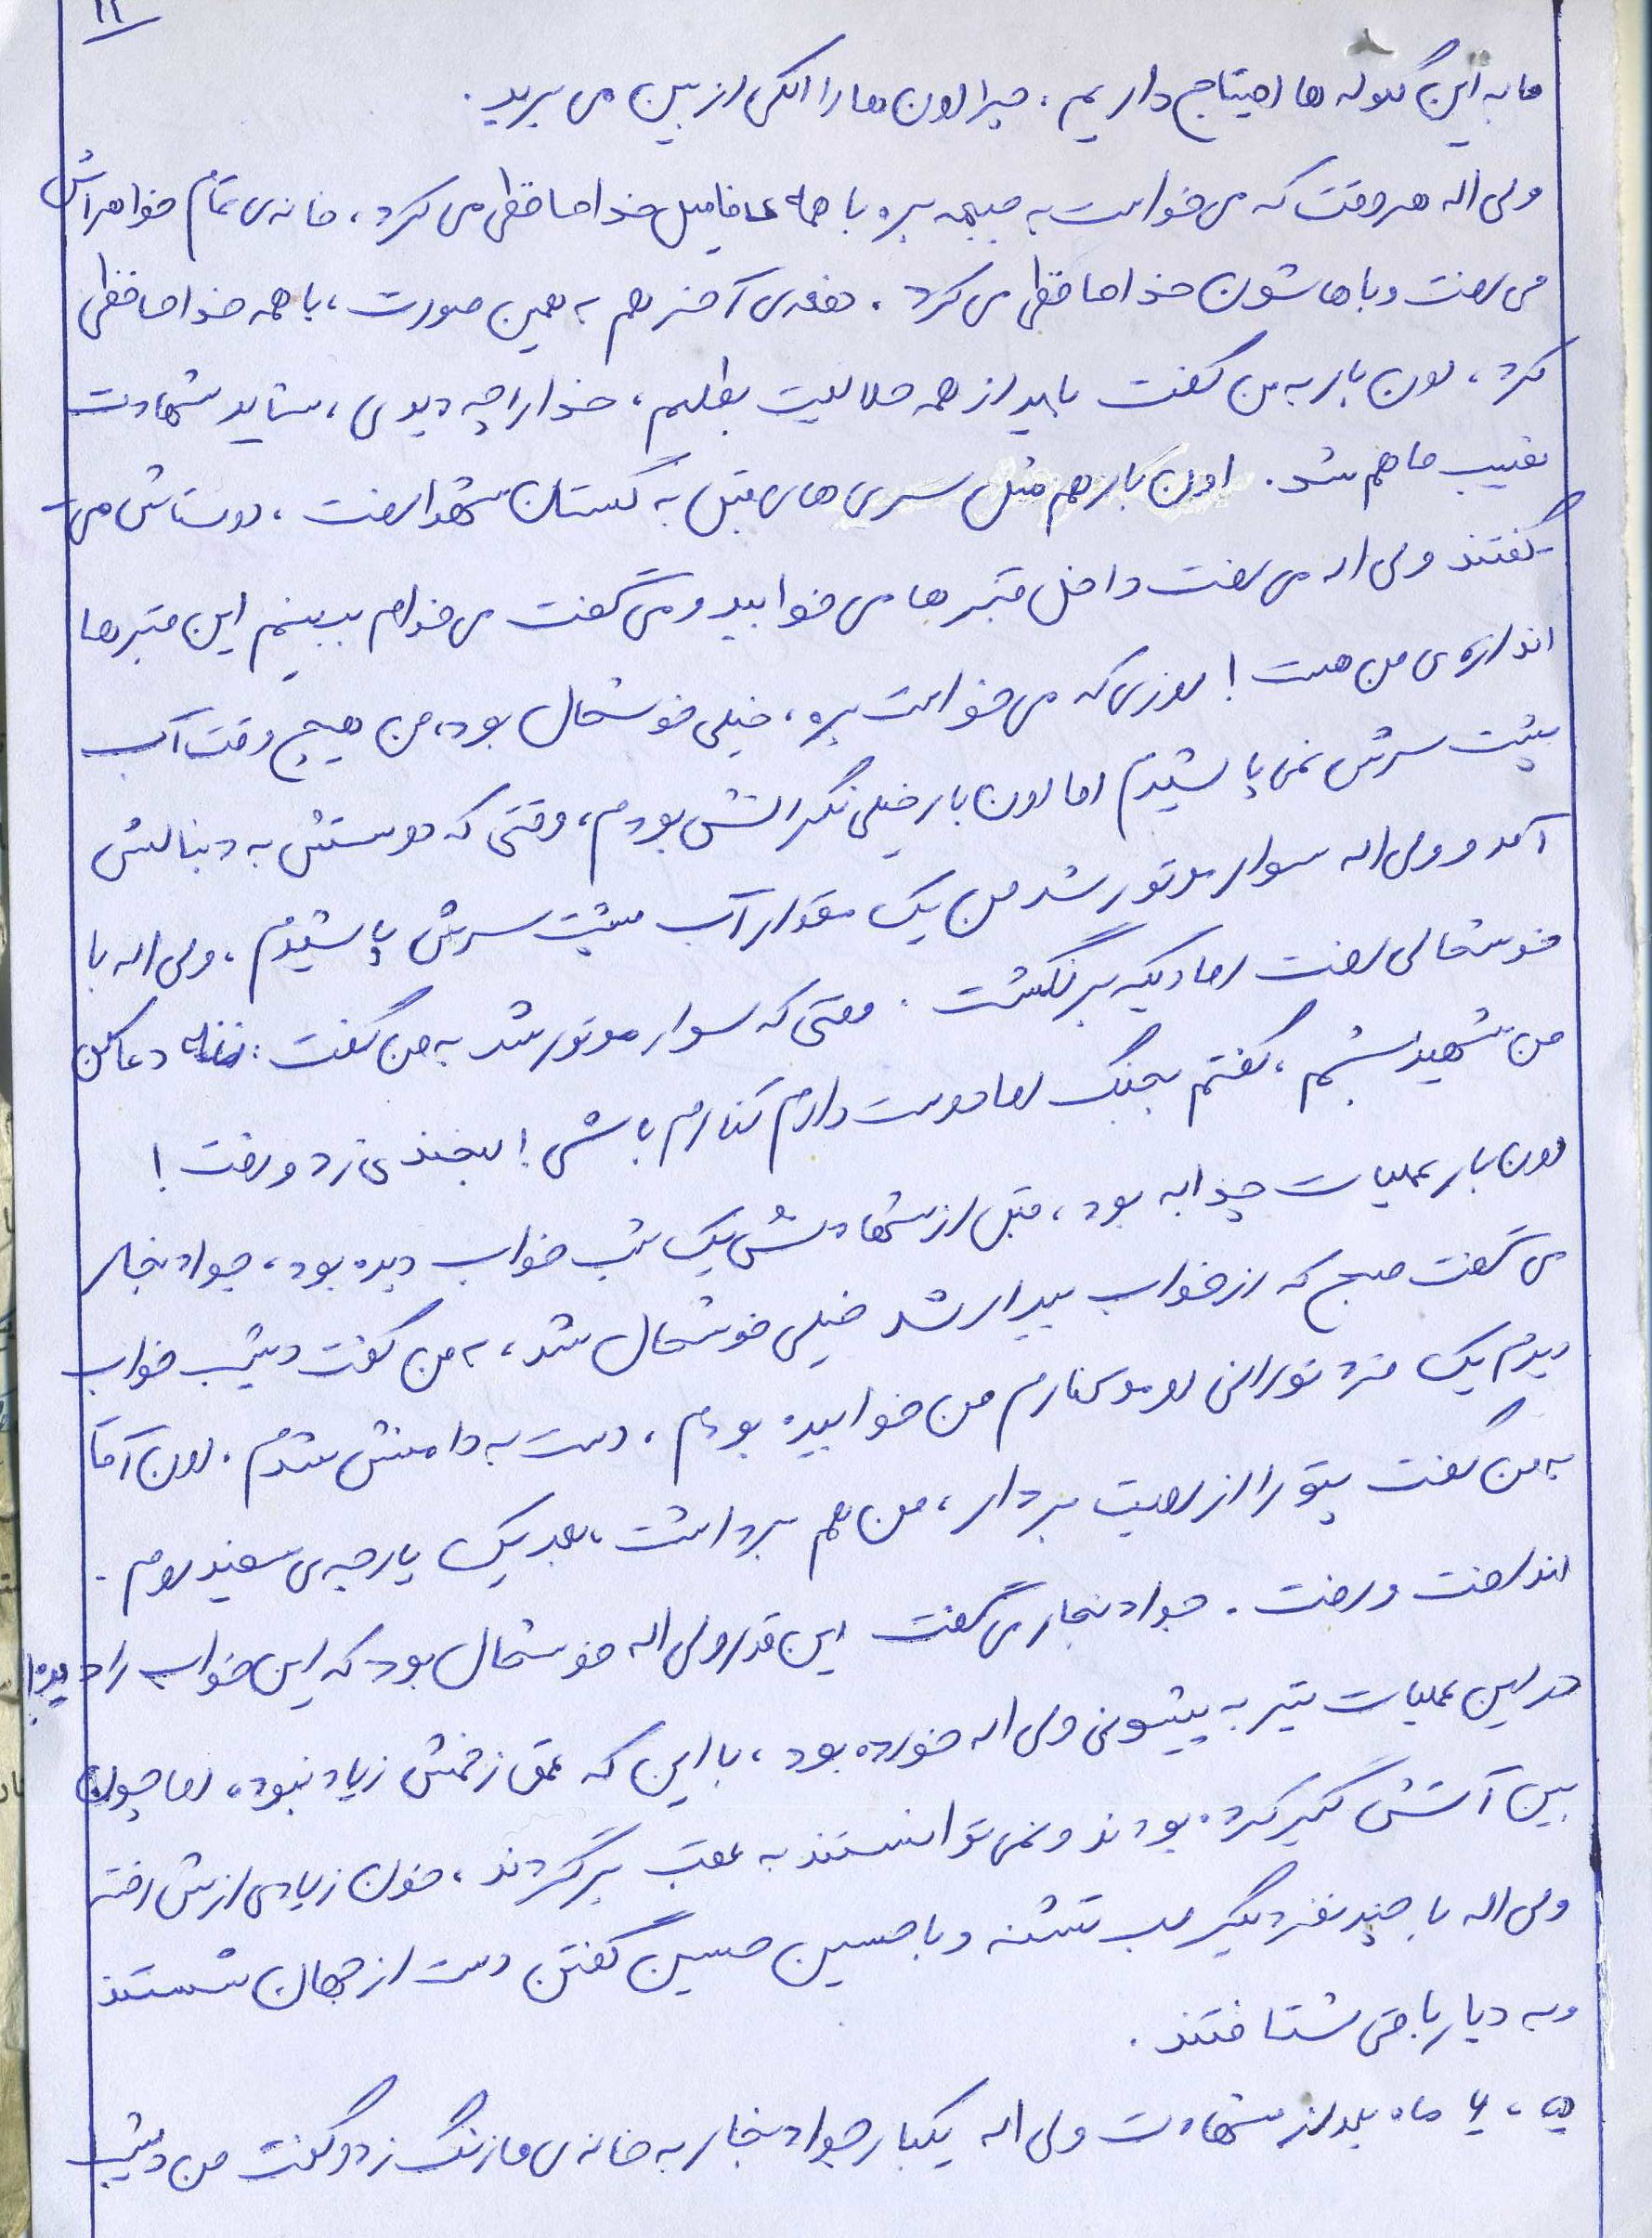 ۱۱
ما به این گلوله ها احتیاج داریم، چرا اون ها را الکی از بین می برید.
ولی اله هر وقت که می خواست به جبهه بره با همه ی فامیل خداحافظی می کرد، خانه ی تمام خواهراش
می رفت و باهاشون خداحافظی می کرد. دفعه ی آخر هم به همین صورت، با همه خداحافظی
کرد، اون بار به من گفت باید از همه حلالیت بطلبم، خدا را چه دیدی، شاید شهادت
نصیب ما هم شد. اون بار هم مثل سری های قبل به گلستان شهدا رفت، دوستاش می
گفتند ولی اله می رفت داخل قبرها می خوابید و می گفت می خوام ببینم این قبرها
اندازه ی من هست! روزی که می خواست بره، خیلی خوشحال بود، من هیچ وقت آب
پشت سرش نمی پاشیدم اما اون بار خیلی نگرانش بودم، وقتی که دوستش به دنبالش
آمد و ولی اله سوار موتور شد من یک مقدار آب پشت سرش پاشیدم، ولی اله با
خوشحالی رفت اما دیگه برنگشت. وقتی که سوار موتور شد به من گفت: ننه دعا کن
من شهید بشم، گفتم بجنگ اما دوست دارم کنارم باشی! لبخندی زد و رفت!
اون بار عملیات چذابه بود، قبل از شهادتش یک شب خواب دیده بود، جواد نجار
می گفت صبح که از خواب بیدار شد خیلی خوشحال شد، به من گفت دیشب خواب
دیدم یک مرد نورانی اومد کنارم من خوابیده بودم، دست به دامنش شدم. اون آقا
به من گفت پتو را از روت بردار، من هم برداشت، بعد یک پارچه ی سفید روم.
انداخت و رفت. جواد نجار می گفت این قدر ولی اله خوشحال بود که این خواب را دیده!
در این عملیات تیر به پیشونی ولی اله خورده بود، با این که عمق زخمش زیاد نبوده، اما چون
بین آتش گیر کرده بودند و نمی توانستند به عقب برگردند، خون زیادی ازش رفته
ولی اله با چند نفر دیگر لب تشنه و با حسین حسین گفتن دست از جهان شستند
و به دیار باقی شتافتند.
۵، ۶ ماه بعد از شهادت ولی اله یکبار جواد نجار به خانه ی ما زنگ زد و گفت من دیشب